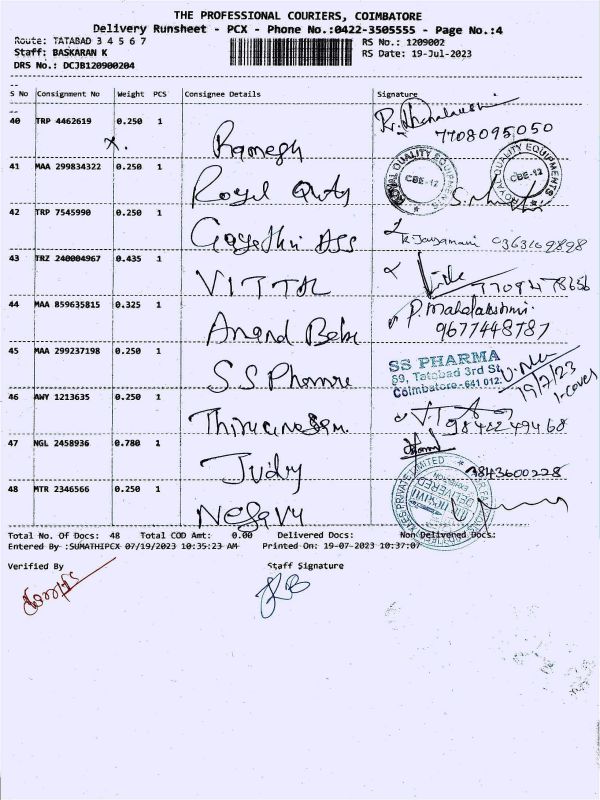 THE PROFESSIONAL COURIERS, COIMBATORE
Delivery Runsheet - PCX - Phone No.:0422-3505555 - Page No.:4
Route: TATABAD 3 4 5 6 7 RS No.: 1209002
Staff: BASKARAN K RS Date: 19-Jul-2023
DRS No.: DCJB120900204
S No Consignment No Weight PCS Consignee Details Signature
40 TRP 4462619 0.250 1 Ramesh
7708095050
41 MAA 299834322 0.250 1 Royal
ROYAL QUALITY EQUIPMENTS CBE-12
ROYAL QUALITY EQUIPMENTS CBE-12
42 TRP 7545990 0.250 1 Gayathri Ass
43 TRZ 240004967 0.435 1 VITTAL
44 MAA 859635815 0.325 1 Anand Babu P. Mahalakshmi
9677448787
45 MAA 299237198 0.250 1 S.S Pharma
SS PHARMA
59, Tatabad 3rd St,
Coimbatore-641 012.
19/7/23
1-cover
46 AWY 1213635 0.250 1
9842249468
47 NGL 2458936 0.780 1 Judy
9843600228
48 MTR 2346566 0.250 1
DELIVERED
Total No. Of Docs: 48 Total COD Amt: 0.00 Delivered Docs: Non Delivered Docs:
Entered By :SUMATHIPCX 07/19/2023 10:35:23 AM Printed On: 19-07-2023 10:37:07
Verified By Staff Signature